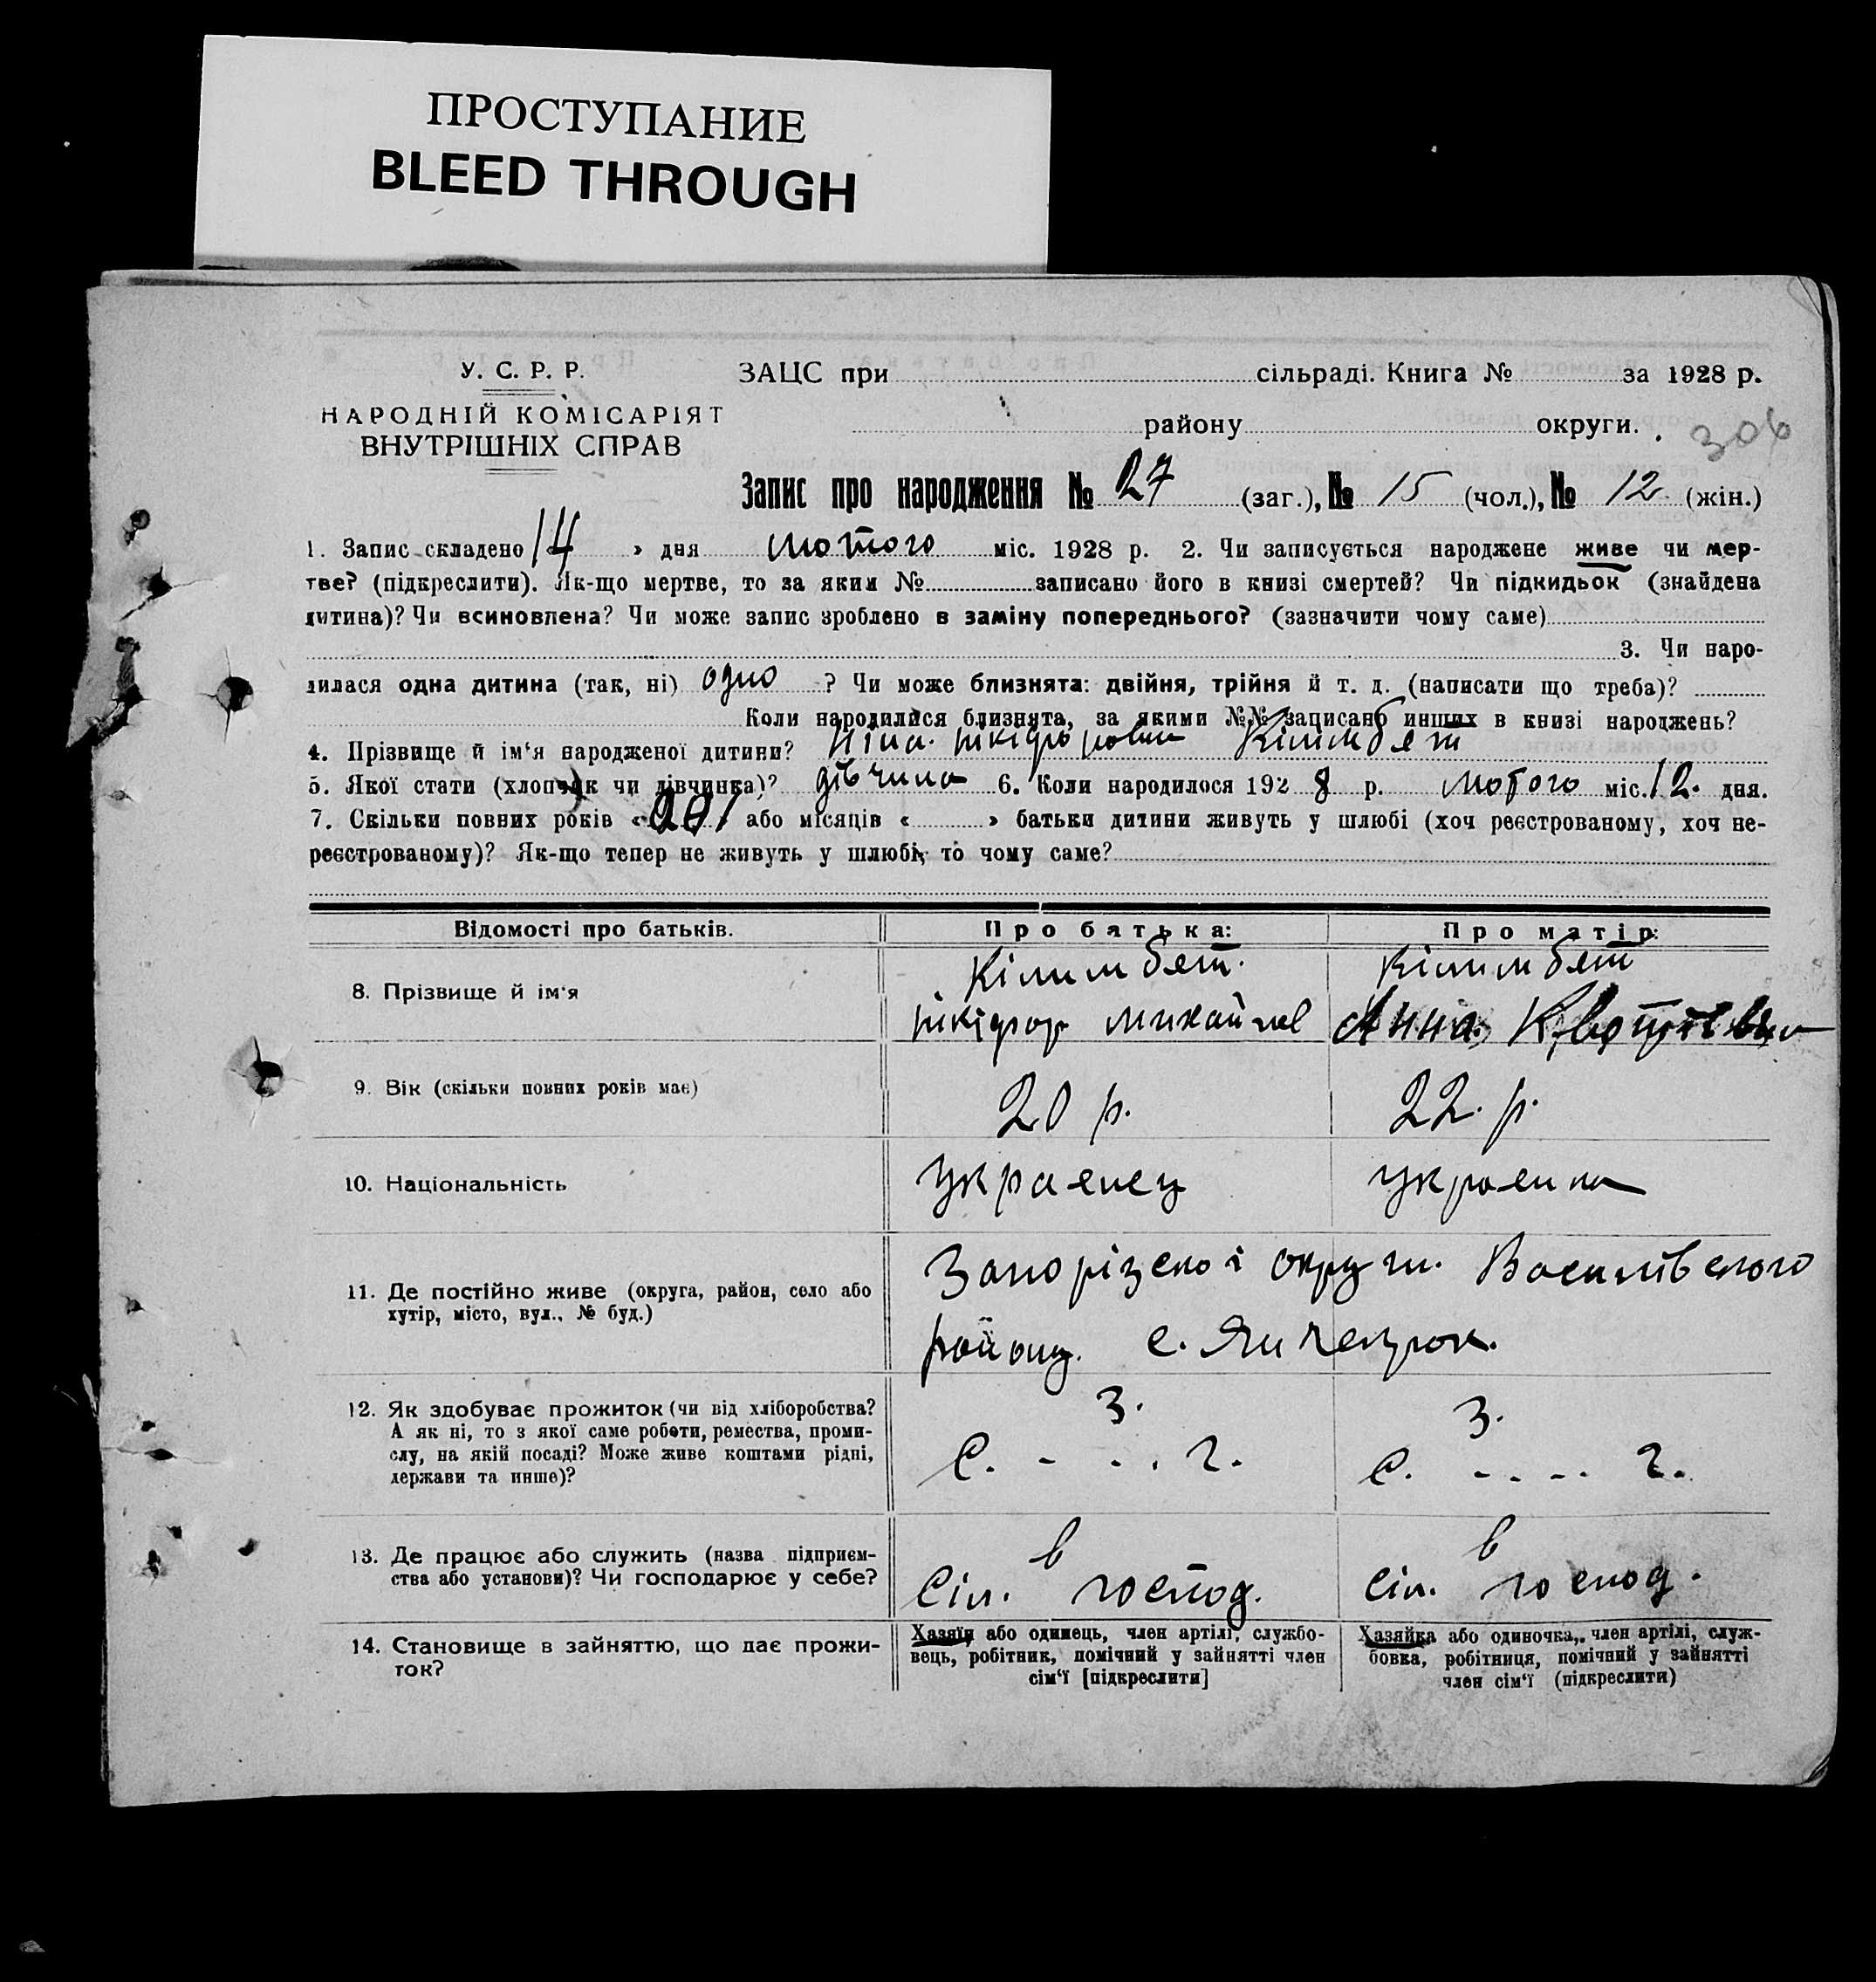 ПРОСТУПАНИЕ
BLEED THROUGH
У. С. Р. Р.
НАРОДНІЙ КОМІСАРІЯТ
ВНУТРІШНІХ СПРАВ
ЗАЦС при сільраді. Книга № за 1928 р.
району округи.
306
Запис про народження № 27 (заг.), № 15 (чол.), № 12 (жін.)
1. Запис складено 14 » дня лютого міс. 1928 р. 2. Чи записується народжене живе чи мер-
тве? (підкреслити). Як-що мертве, то за яким № записано його в книзі смертей? Чи підкидьок (знайдена
дитина)? Чи всиновлена? Чи може запис зроблено в заміну попереднього? (зазначити чому саме)
3. Чи наро-
дилася одна дитина (так, ні) одно ? Чи може близнята: двійня, трійня й т. д. (написати що треба)?
Коли народилися близнята, за якими №№ записано инших в книзі народжень?
4. Прізвище й ім‘я народженої дитини? Ніна Кілимбет
5. Якої стати (хлопчик чи дівчинка)? дівчина 6. Коли народилося 1928 р. лютого міс. 12. дня.
7. Скільки повних років « » або місяців « » батьки дитини живуть у шлюбі (хоч реєстрованому, хоч не-
реєстрованому)? Як-що тепер не живуть у шлюбі, то чому саме?
Відомості про батьків.
Про батька:
Про матір:
8. Прізвище й ім‘я
Кілимбет.
Нікіфор Михайлов
Кілимбет
Анна
9. Вік (скільки повних років має)
20 р.
22. р.
10. Національність
Украенец
украенка
11. Де постійно живе (округа, район, село або
хутір, місто, вул., № буд.)
Запорізекоі округи. Василівского
району. с. Янчекрак.
12. Як здобуває прожиток (чи від хліборобства?
А як ні, то з якої саме роботи, ремества, проми-
слу, на якій посаді? Може живе коштами рідні,
держави та инше)?
З.
С. - - . . г.
З.
С. - . . - . г.
13. Де працює або служить (назва підприєм-
ства або установи)? Чи господарює у себе?
в
Сіл. господ.
в
сіл. господ.
14. Становище в зайняттю, що дає прожи-
ток?
Хазяїн або одинець, член артілі, службо-
вець, робітник, помічний у зайнятті член
сім‘ї [підкреслити]
Хазяйка або одиночка, член артілі, служ-
бовка, робітниця, помічний у зайнятті
член сім‘ї (підкреслити)